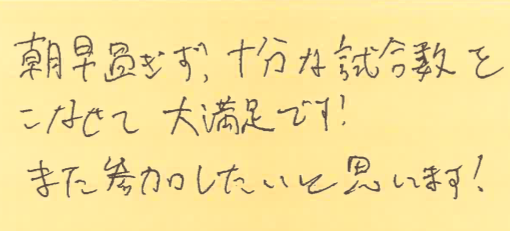 朝早過ぎず、十分な試合数を
こなせて 大満足です!
また参加したいと思います!